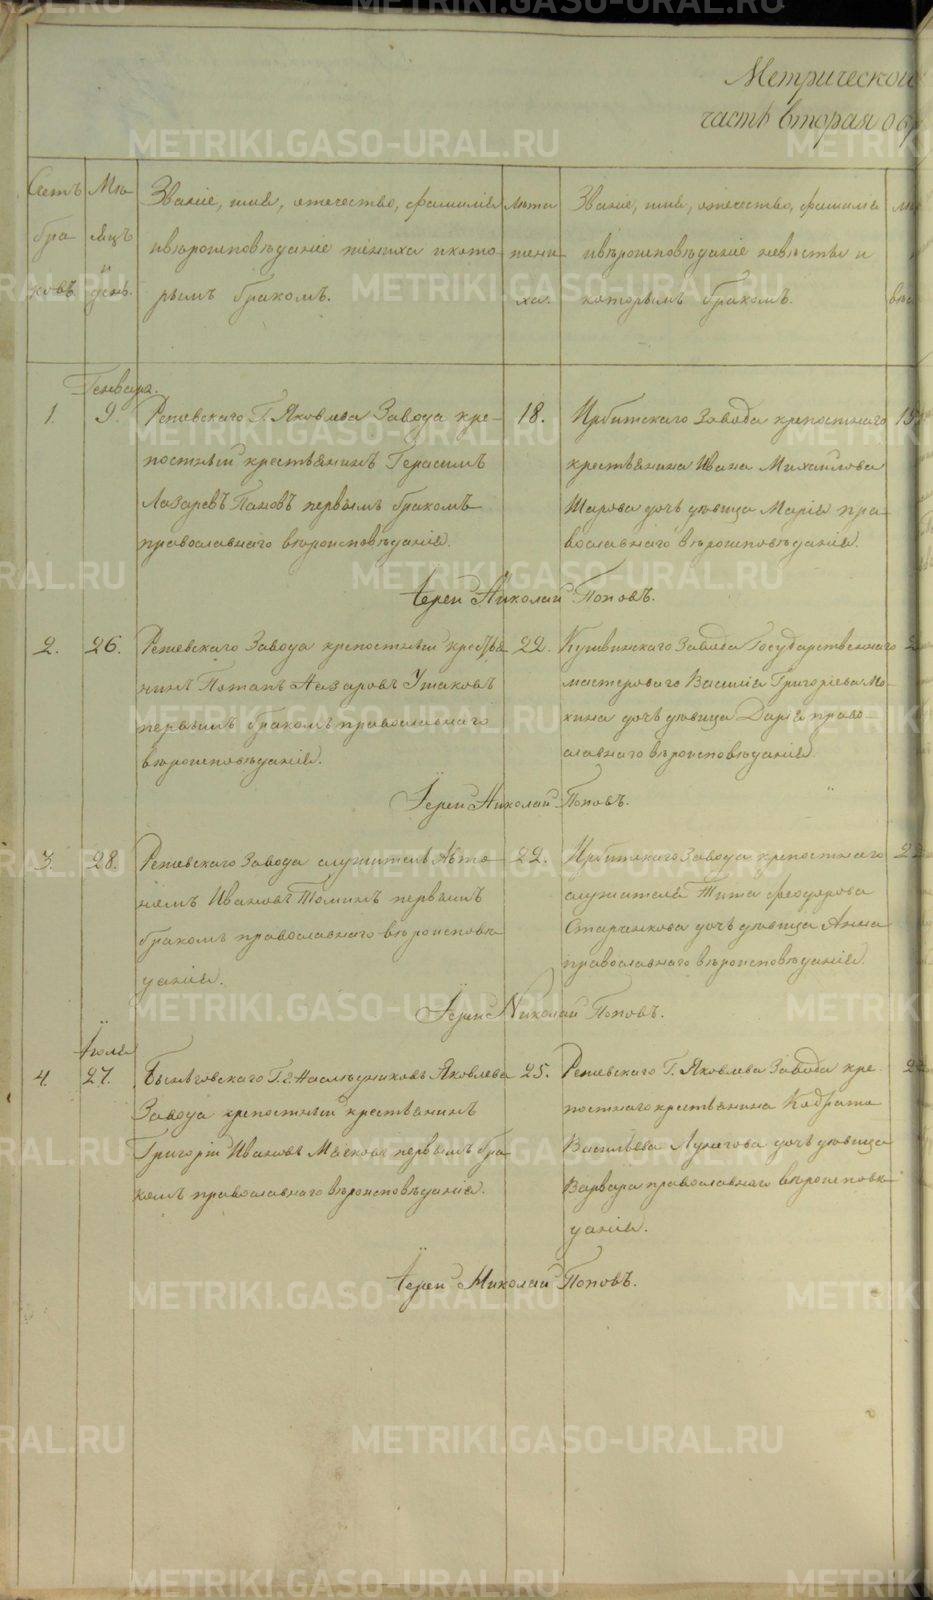 Метрической
часть вторая о б
Счетъ браковъ.
Мѣсяцъ и день.
Званіе, имя, отечество, фамилія
и вѣроисповѣданіе жениха и кото-
рымъ бракомъ.
Лѣта жениха.
Званіе, имя, отечество, фамилія
и вѣроисповѣданіе невѣсты и
которымъ бракомъ.
Генваря.
1. 9.
Режевскаго Г. Яковлева Завода кре-
постный крестьянинъ Герасимъ
Лазаревъ Пановъ первымъ бракомъ
православнаго вѣроисповѣданія.
18.
Ирбитскаго Завода крепостнаго
крестьянина Ивана Михайлова
Шарова дочь дѣвица Марія пра-
вославнаго вѣроисповѣданія.
Іерей Николай Поповъ.
2. 26.
Режевскаго Завода крепостный крестья
нинъ Потапъ Назаровъ Ушаковъ
первымъ бракомъ православнаго
вѣроисповѣданія.
22.
Кушвинскаго Завода Государственнаго
мастероваго Василія Григоріева Мо-
хина дочь дѣвица Дарья право-
славнаго вѣроисповѣданія
Іерей Николай Поповъ.
3. 28.
Режевскаго Завода служитель Авто-
номъ Ивановъ Томинъ первымъ
бракомъ православнаго вѣроисповѣ
данія.
22.
Ирбитскаго Завода крепостнаго
служителя Тита Феодорова
Старикова дочь дѣвица Анна
православнаго вѣроисповѣданія
Іерей Николай Поповъ.
Іюля
4. 27.
Быньговскаго Г.г. Наслѣдниковъ Яковлева
Завода крепостный крестьянинъ
Григорій Ивановъ первымъ бра-
комъ православнаго вѣроисповѣданія.
25.
Режевскаго Г. Яковлева Завода кре-
постнаго крестьянина Кодрата
Васильева Лунегова дочь дѣвица
Варвара православнаго вѣроисповѣ-
данія.
Іерей Николай Поповъ.
METRIKI.GASO-URAL.RU